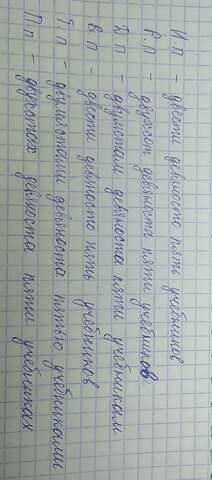 И.п - двести девяносто пять учебников
Р.п - двухсот девяноста пяти учебников
Д.п - двумстам девяноста пяти учебникам
В.п - двести девяносто пять учебников
Т.п - двумястами девяноста пятью учебниками
П.п - двухстах девяноста пяти учебниках